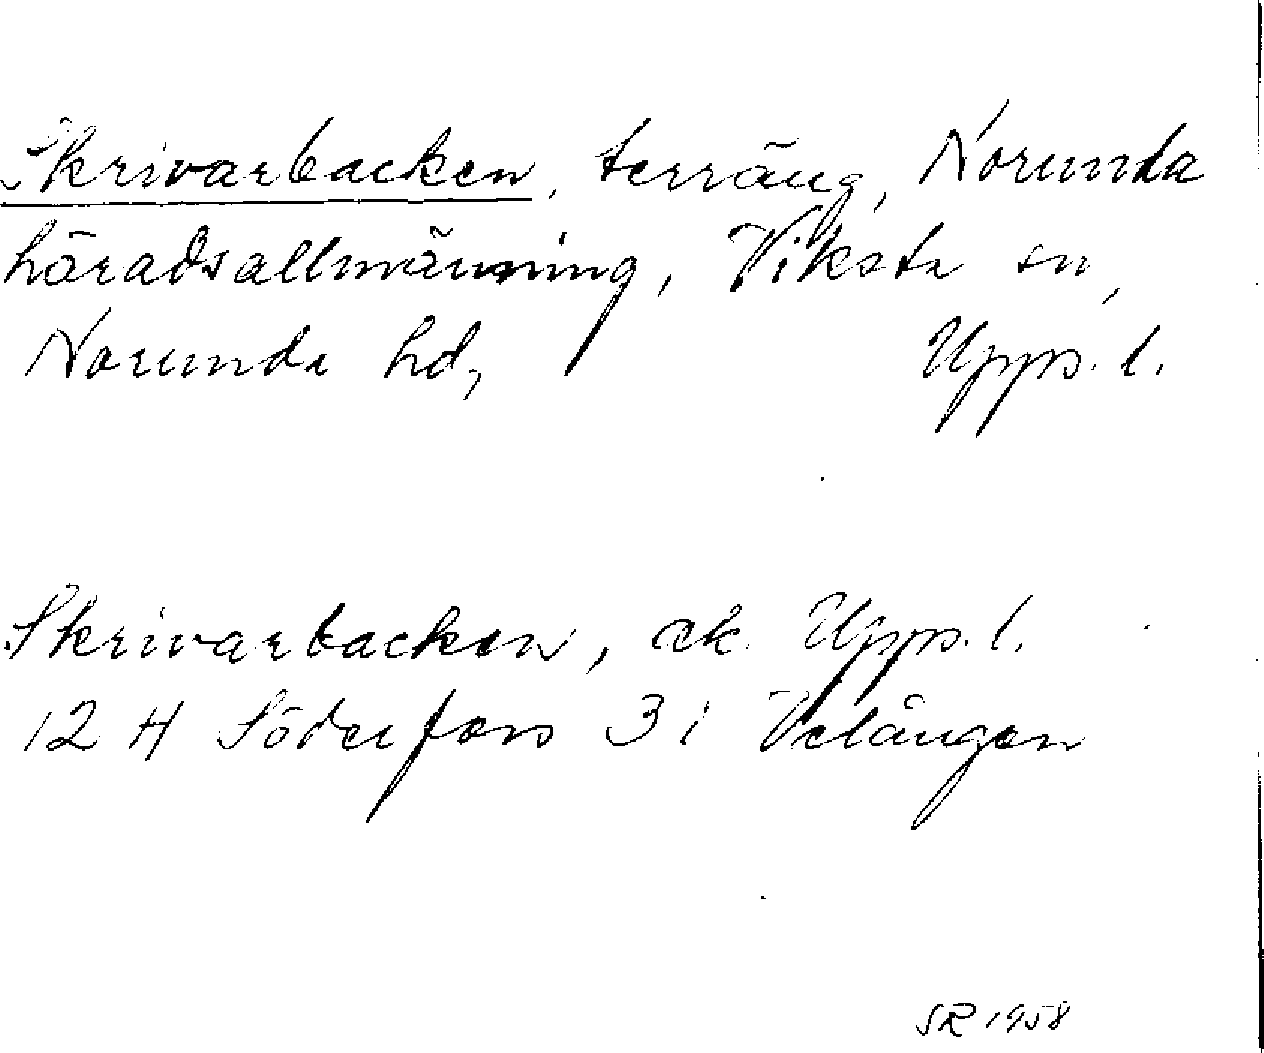 Skrivarbacken, terräng, Norunda
häradsallmänning, Viksta sn,
Norunda hd, Upps. l.
Skrivarbacken, ek. Upps. l.
12 H Söderfors 3 i Velången
SR 1958